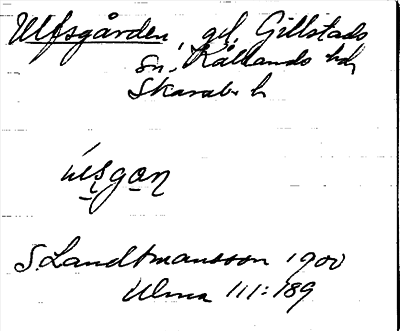 Ulfsgården, gd, Gillstads
sn, Kållands hd,
Skarab. l.
S. Landtmansson 1900
Ulma 111:189